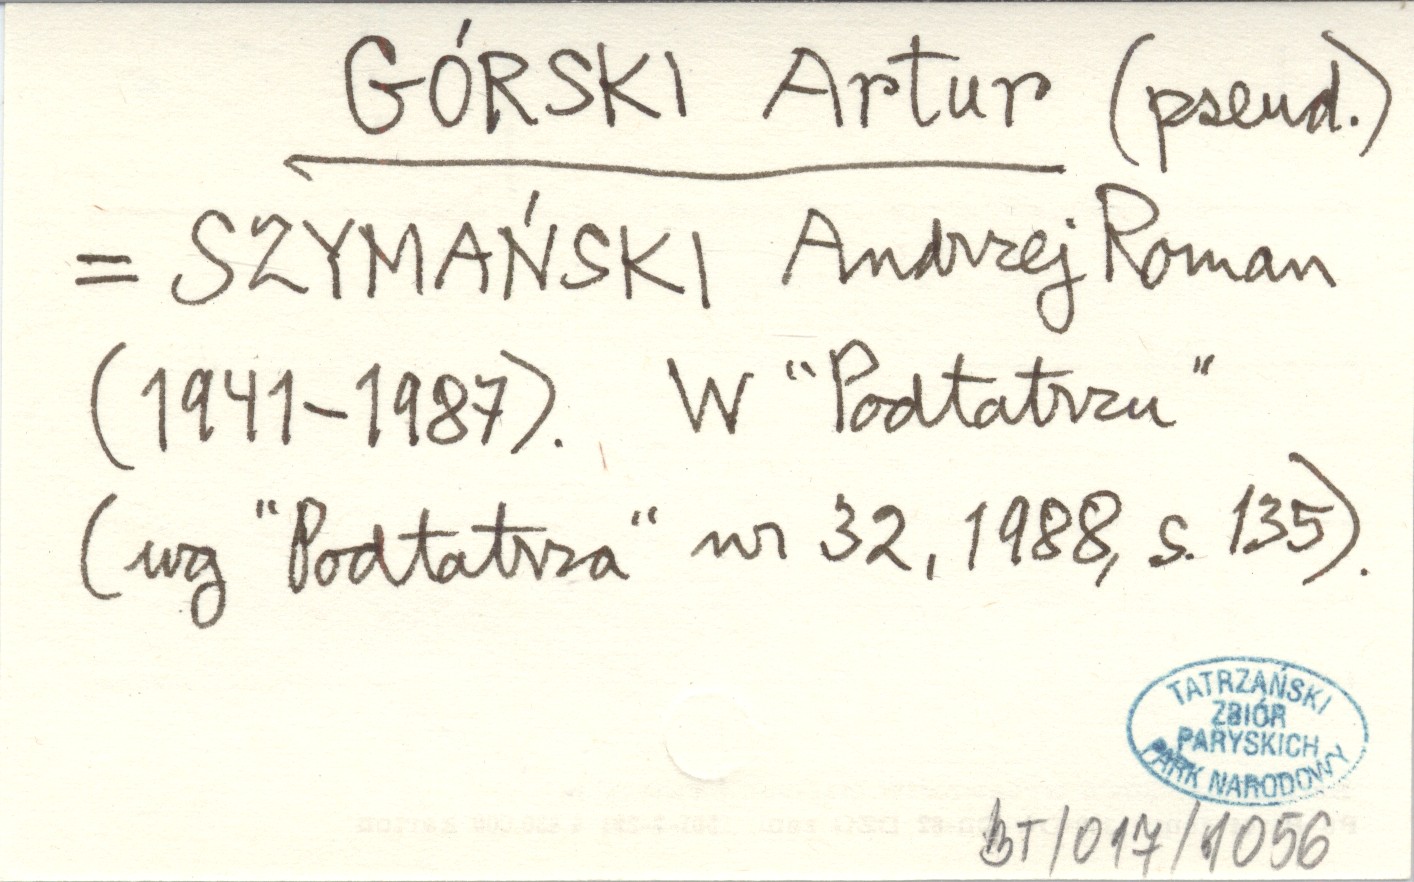 GÓRSKI Artur (pseud.)
= SZYMAŃSKI Andrzej Roman
(1941-1987). W "Podtatrzu"
(wg "Podtatrza" nr 32, 1988, s. 135).
TATRZAŃSKI
ZBIÓR
PARYSKICH
PARK NARODOWY
BT/017/1056